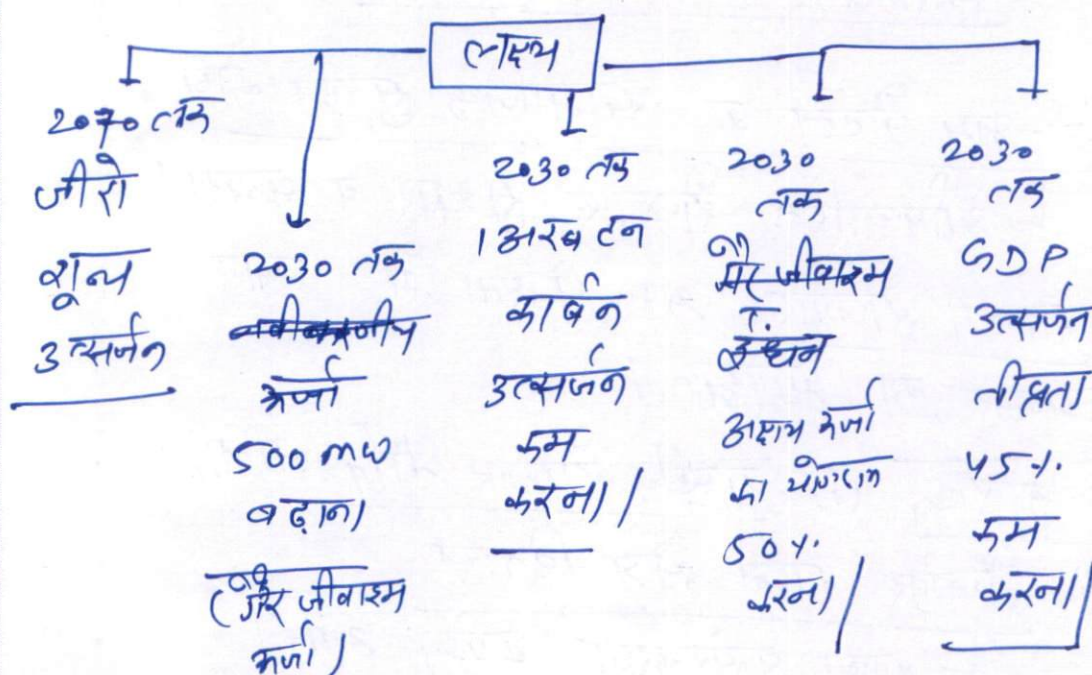 लक्ष्य
2070 तक
जीरो
शून्य
उत्सर्जन
2030 तक
नवीकरणीय
ऊर्जा
500 mw
बढ़ाना
(गैर जीवाश्म
ऊर्जा)
2030 तक
1 अरब टन
कार्बन
उत्सर्जन
कम
करना।
2030
तक
गैर जीवाश्म
ईंधन
अक्षय ऊर्जा
का योगदान
50%
करना।
2030
तक
GDP
उत्सर्जन
तीव्रता
45%
कम
करना।